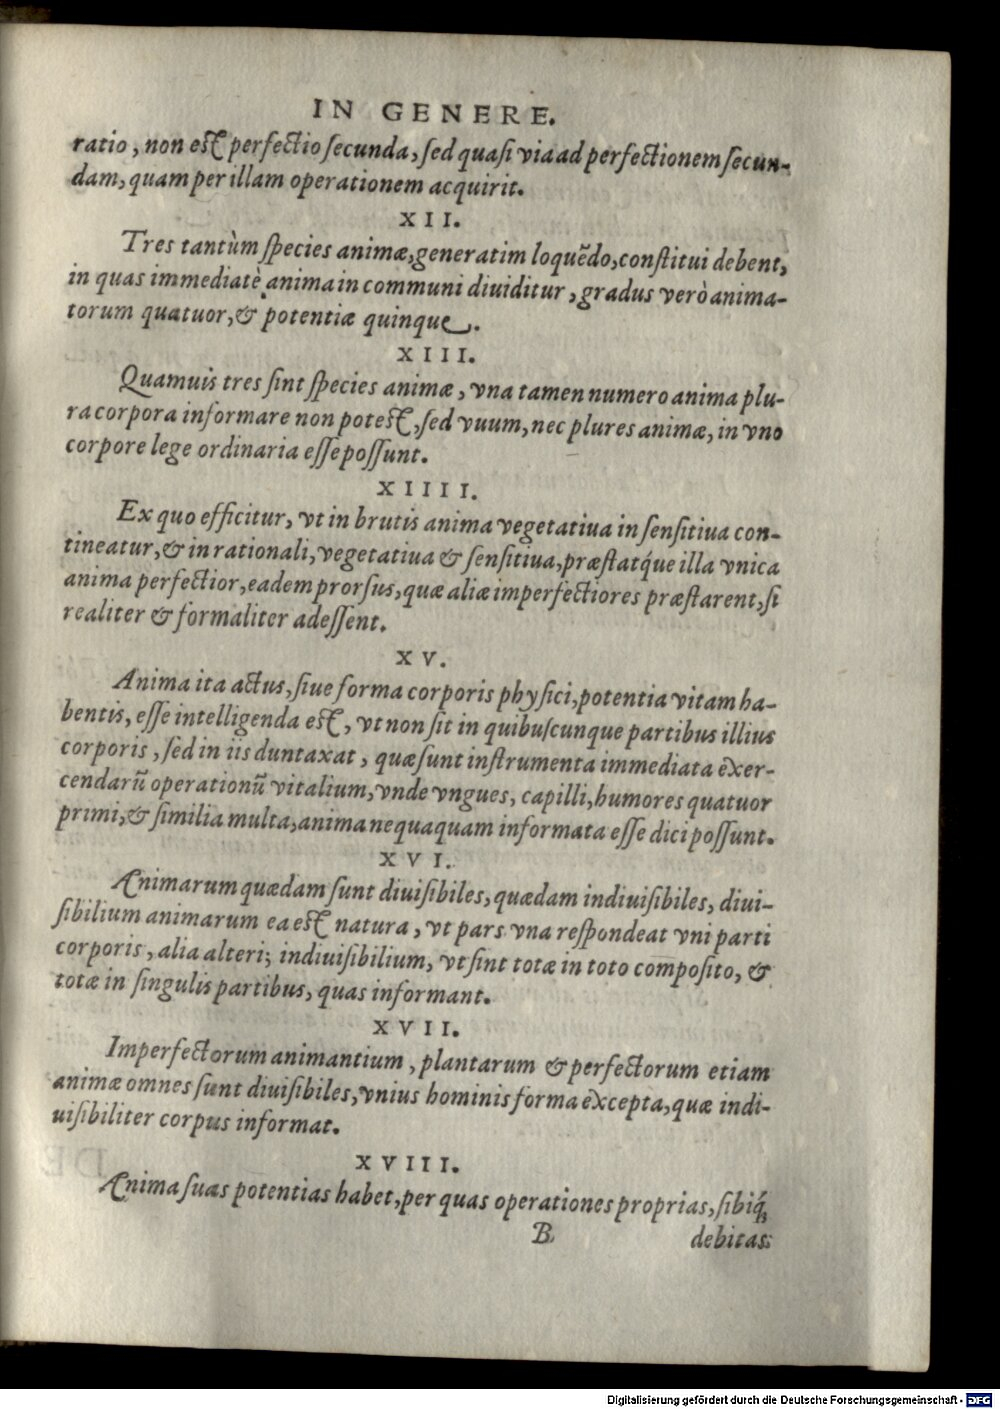 IN GENERE.
ratio, non est perfectio ſecunda, ſed quaſi via ad perfectionem ſecun-
dam, quam per illam operationem acquirit.
XII.
Tres tantùm ſpecies animæ, generatim loquēdo, conſtitui debent,
in quas immediatè anima in communi diuiditur, gradus verò anima-
torum quatuor, & potentiæ quinque.
XIII.
Quamuis tres ſint ſpecies animæ, vna tamen numero anima plu-
ra corpora informare non poteſt, ſed vuum, nec plures animæ, in vno
corpore lege ordinaria eſſe poſſunt.
XIIII.
Ex quo efficitur, vt in brutis anima vegetatiua in ſenſitiua con-
tineatur, & in rationali, vegetatiua & ſenſitiua, præſtatq́ue illa vnica
anima perfectior, eadem prorſus, quæ aliæ imperfectiores præſtarent, ſi
realiter & formaliter adeſſent.
XV.
Anima ita actus, ſiue forma corporis phyſici, potentia vitam ha-
bentis, eſſe intelligenda eſt, vt non ſit in quibuſcunque partibus illius
corporis, ſed in iis duntaxat, quæ ſunt inſtrumenta immediata exer-
cendarū operationū vitalium, vnde vngues, capilli, humores quatuor
primi, & ſimilia multa, anima nequaquam informata eſſe dici poſſunt.
XVI.
Animarum quædam ſunt diuiſibiles, quædam indiuiſibiles, diui-
ſibilium animarum ea eſt natura, vt pars vna reſpondeat vni parti
corporis, alia alteri; indiuiſibilium, vt ſint totæ in toto compoſito, &
totæ in ſingulis partibus, quas informant.
XVII.
Imperfectorum animantium, plantarum & perfectorum etiam
animæ omnes ſunt diuiſibiles, vnius hominis forma excepta, quæ indi-
uiſibiliter corpus informat.
XVIII.
Anima ſuas potentias habet, per quas operationes proprias, ſibiq́;
B debitas
Digitalisierung gefördert durch die Deutsche Forschungsgemeinschaft - DFG